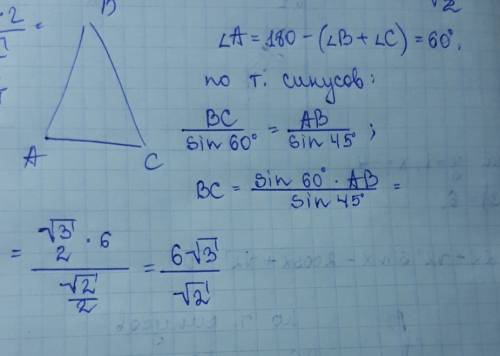 B
∠A = 180 - (∠B + ∠C) = 60°.
по т. синусов:
BC/sin 60° = AB/sin 45°;
A
C
BC = sin 60° · AB/sin 45° =
= (√3/2 · 6)/(√2/2) = 6√3/√2